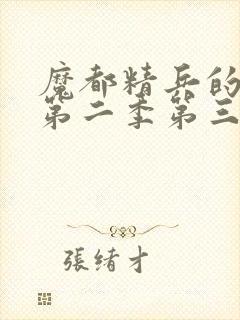 魔都精兵的
第二季第三
張绪才